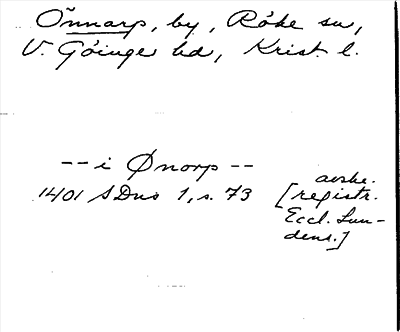 Önnarp, by, Röke sn,
V. Göinge hd, Krist. l.
-- i Ønorp --
1401 SDns 1, s. 73
avskr.
[registr.
Eccl. Lun-
dens.]